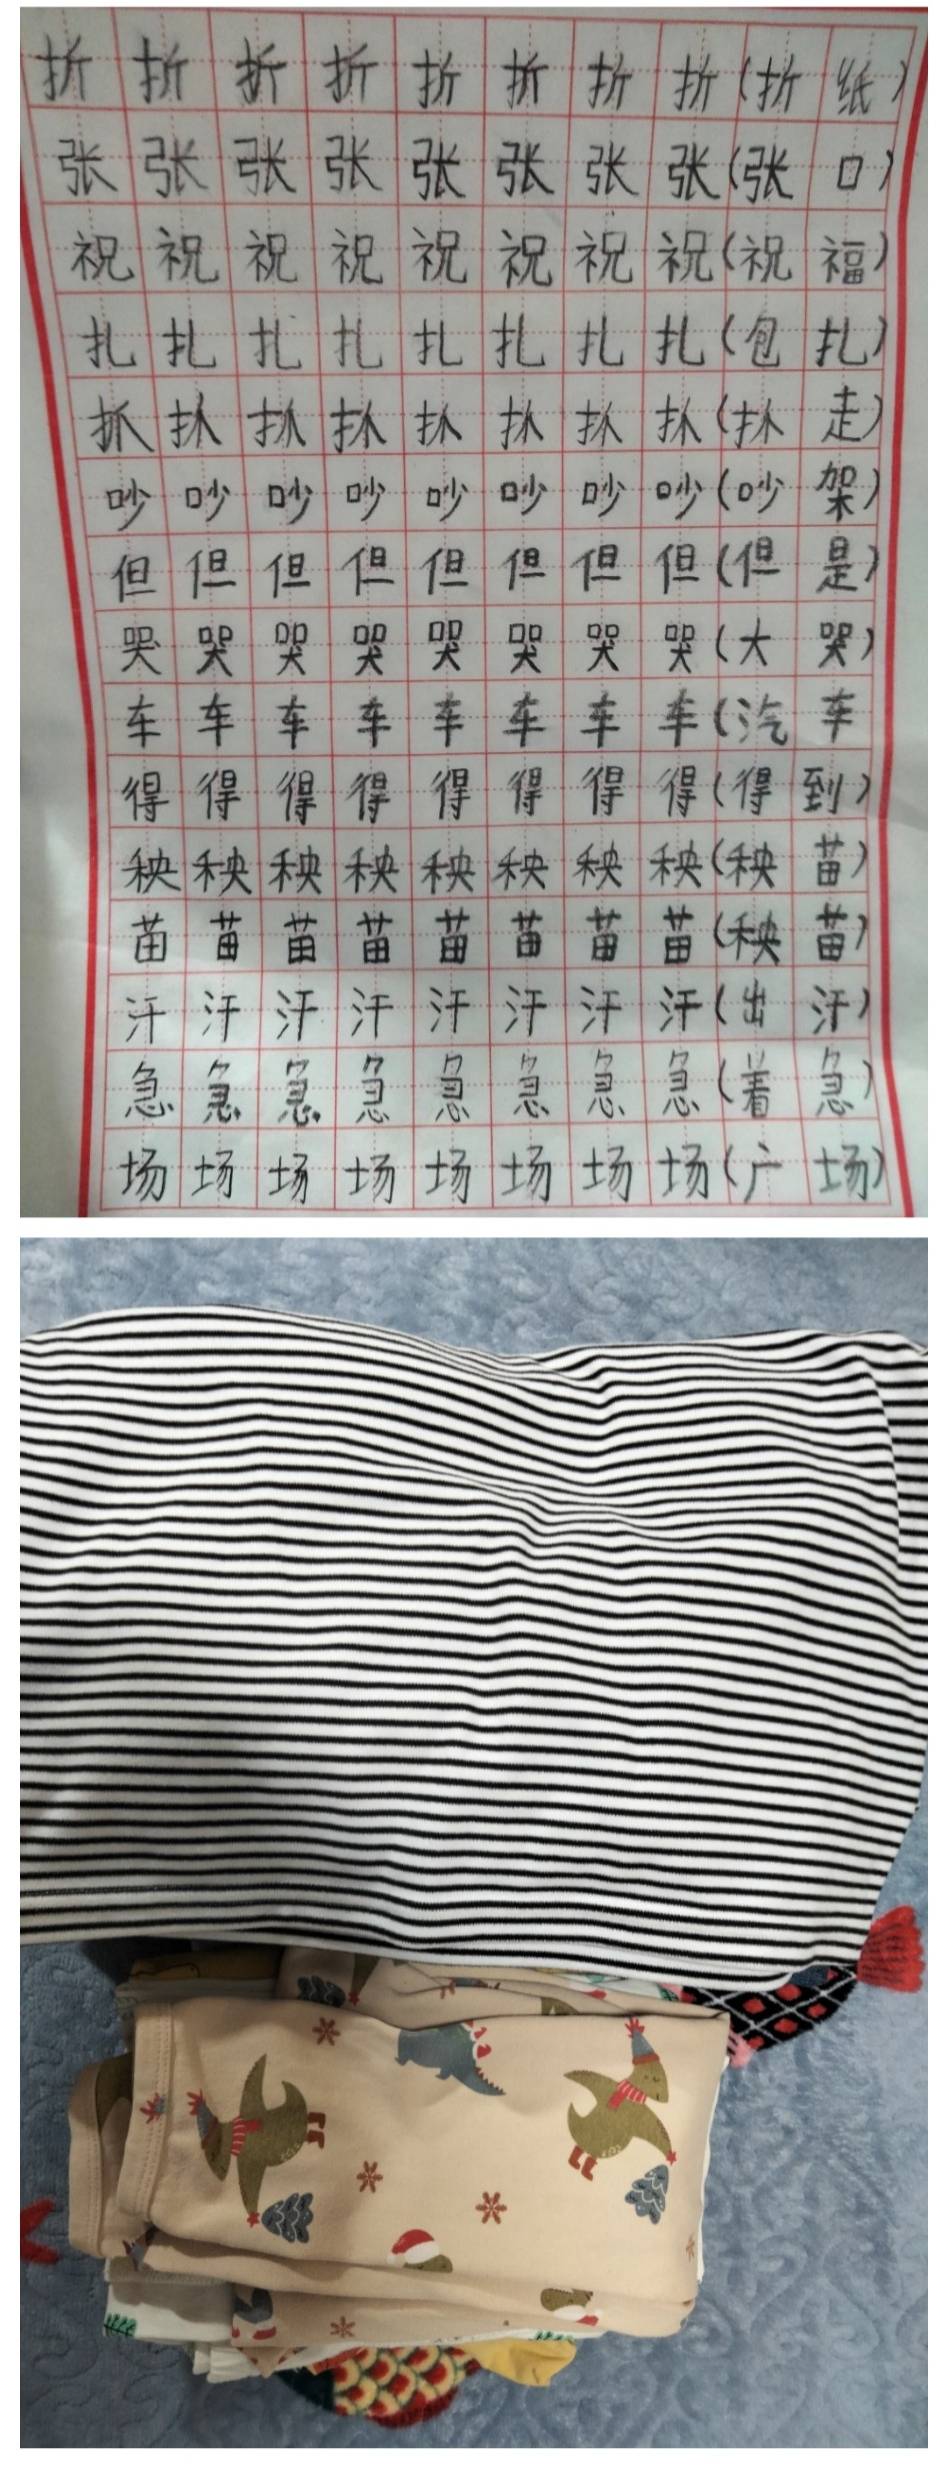 折折折折折折折折(折纸)
张张张张张张张张(张口)
祝祝祝祝祝祝祝祝(祝福)
扎扎扎扎扎扎扎扎(包扎)
抓抓抓抓抓抓抓抓(抓走)
吵吵吵吵吵吵吵吵(吵架)
但但但但但但但但(但是)
哭哭哭哭哭哭哭哭(大哭)
车车车车车车车车(汽车
得得得得得得得得(得到)
秧秧秧秧秧秧秧秧(秧苗)
苗苗苗苗苗苗苗苗(秧苗)
汗汗汗汗汗汗汗汗(出汗)
急急急急急急急急(着急)
场场场场场场场场(广场)